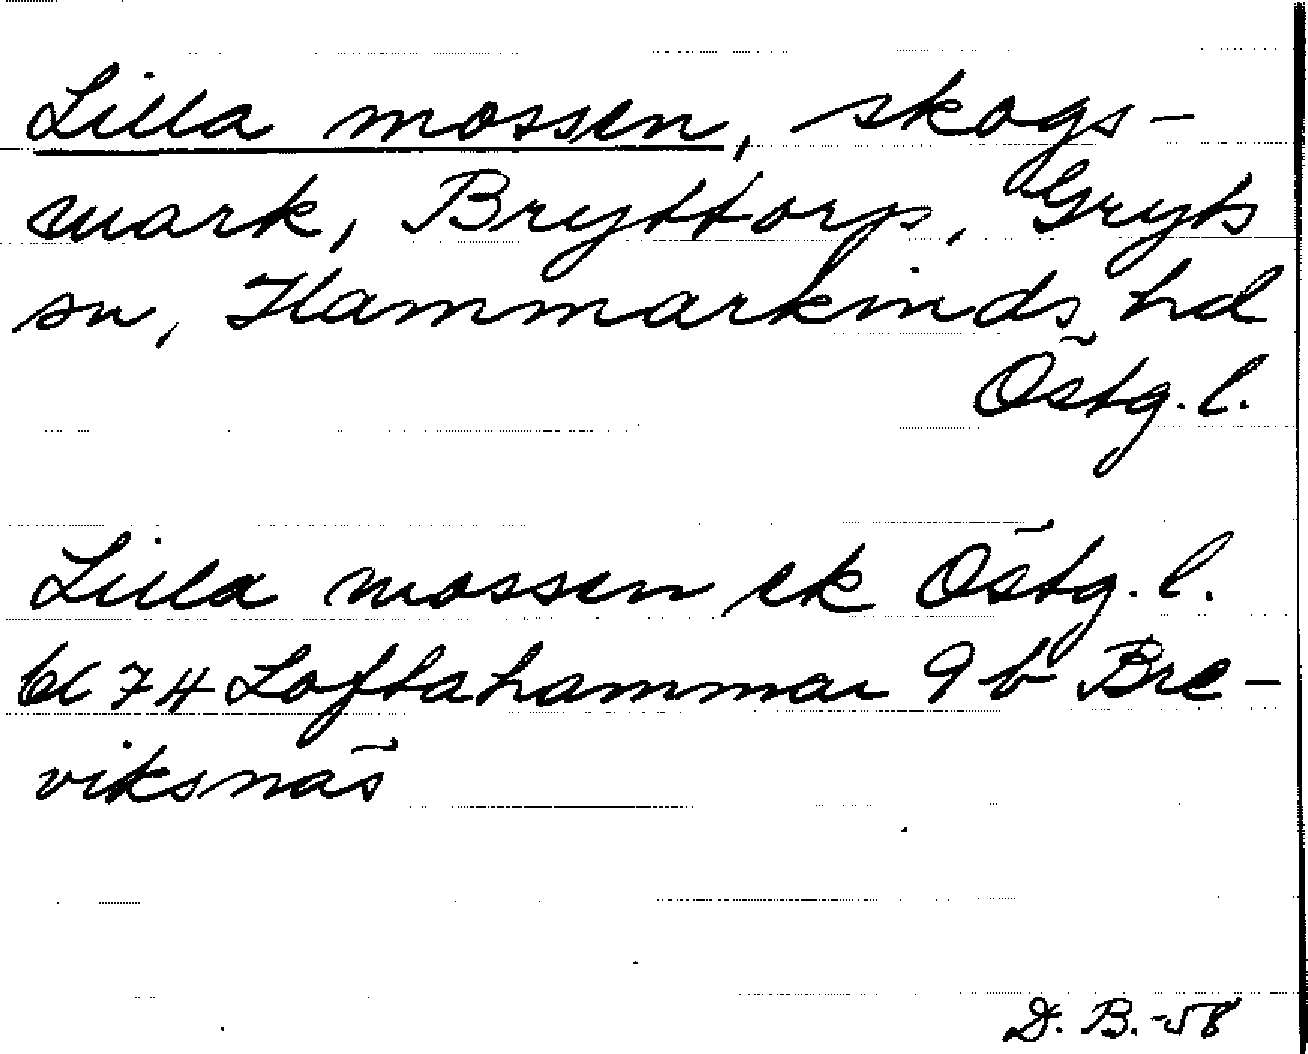 Lilla mossen, skogs-
mark, Bryttorp, Gryts
sn, Hammarkinds hd
Östg. l.
Lilla mossen ek Östg. l.
6G 7H Loftahammar 9 b Bre-
viksnäs
D. B. -58